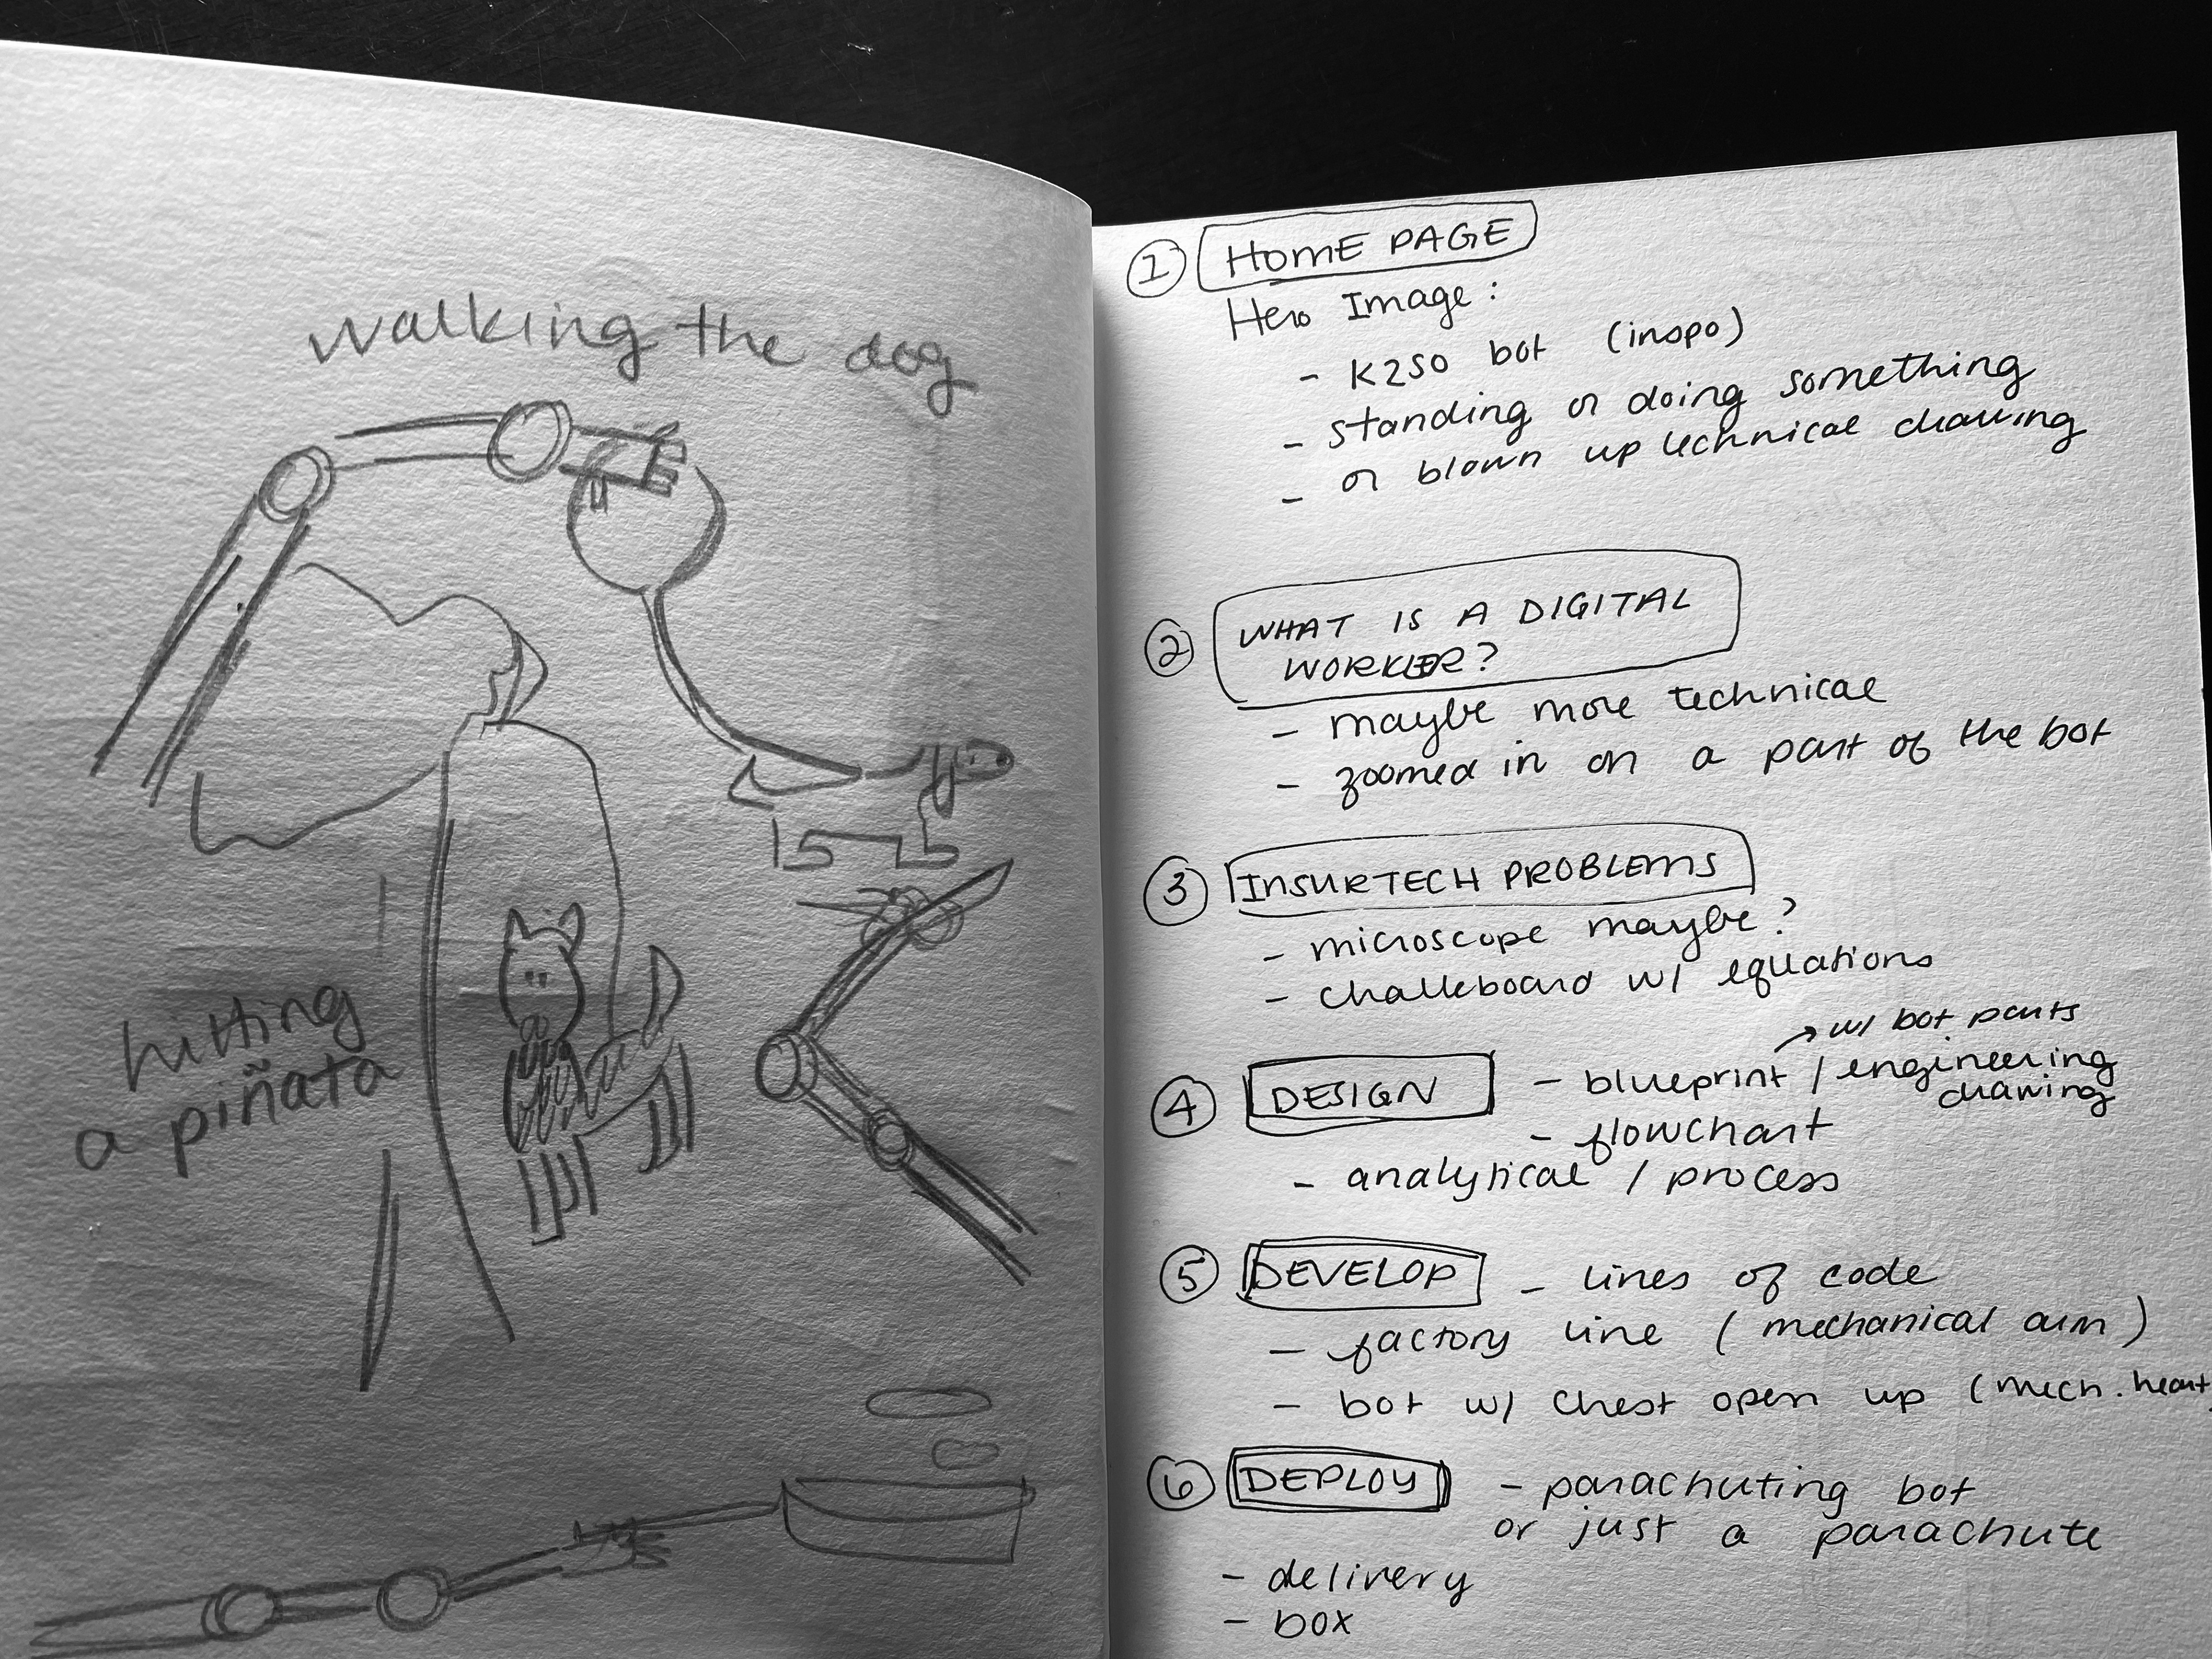 walking the dog
hitting
a piñata
1 HOME PAGE
Hero Image:
- K2SO bot (inspo)
- standing or doing something
- or blown up technical drawing
2 WHAT IS A DIGITAL
WORKER?
- maybe more technical
- zoomed in on a part of the bot
3 INSURTECH PROBLEMS
- microscope maybe?
- chalkboard w/ equations
→ w/ bot parts
4 DESIGN - blueprint / engineering
drawing
- flowchart
- analytical / process
5 DEVELOP - lines of code
- factory line (mechanical arm)
- bot w/ chest open up (mech. heart
6 DEPLOY - parachuting bot
or just a parachute
- delivery
- box